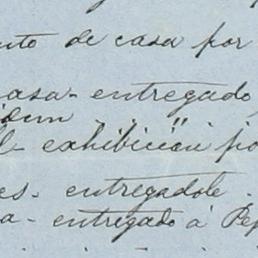 nto de casa por
casa - entregado
idem . . " .
l- exhibicion po
es- entregadole -
a- entregado á Pep